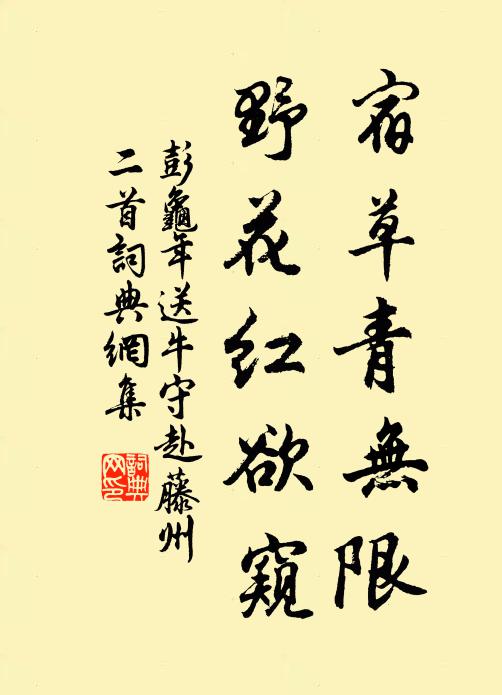 宿草青無限
野花红欲窺
彭龜年送牛守赴藤州
二首詞典網集
詞典
网印